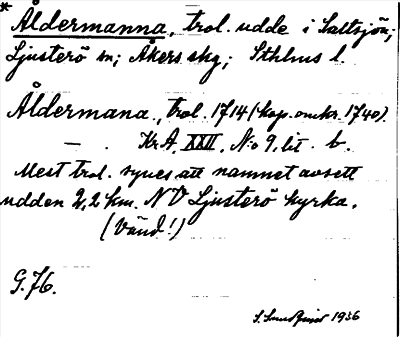 * Åldermanna, trol. udde i Saltsjön;
Ljusterö sn; Åkers skg; Sthlms l.
Åldermana, trol. 1714 (kop. omkr. 1740).
— . Kr.A, XXII, No 9, lit. b.
Mest trol. synes att namnet avsett
udden 2,2 km. NV Ljusterö kyrka.
(Vänd!)
G. 76.
S. 1936